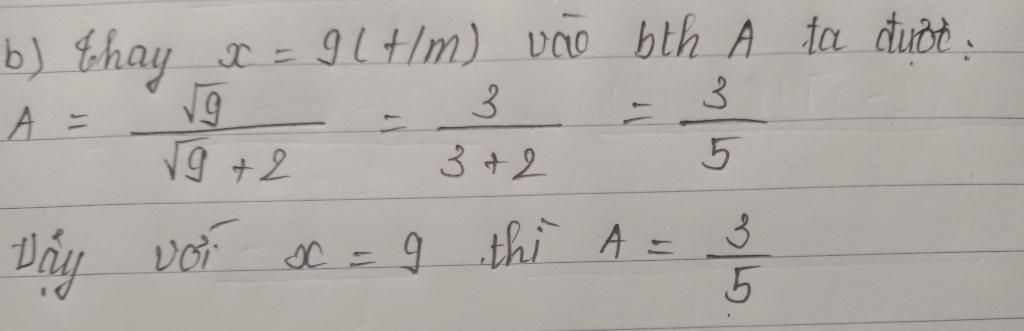 b) thay x = 9 (t/m) vào bth A ta được:
A = √9 / (√9 + 2) = 3 / (3 + 2) = 3 / 5
Vậy với x = 9 thì A = 3 / 5